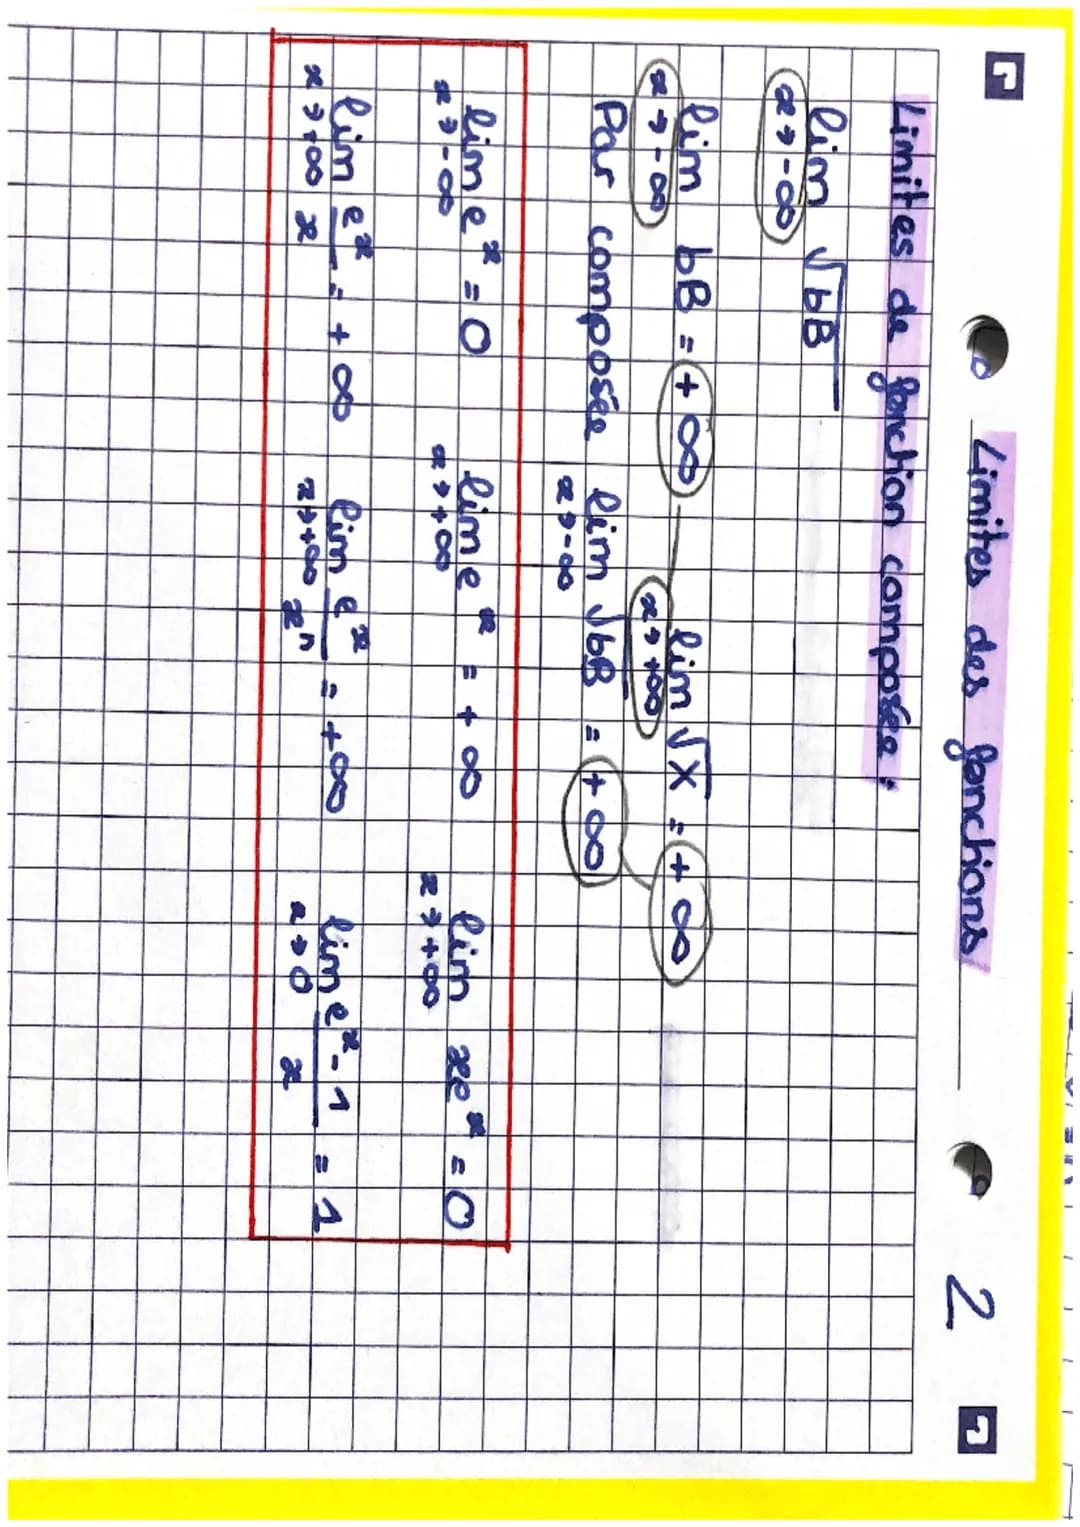 Limites des fonctions 2
Limites de fonction composée :
lim √bB
x→-∞
lim bB = +∞ lim √X = +∞
x→-∞ x→+∞
Par composée lim √bB = +∞
x→-∞
lim eˣ = 0 lim eˣ = +∞ lim xeˣ = 0
x→-∞ x→+∞ x→+∞
lim eˣ/x = +∞ lim eˣ/xⁿ = +∞ lim eˣ-1/x = 1
x→+∞ x→+∞ x→0